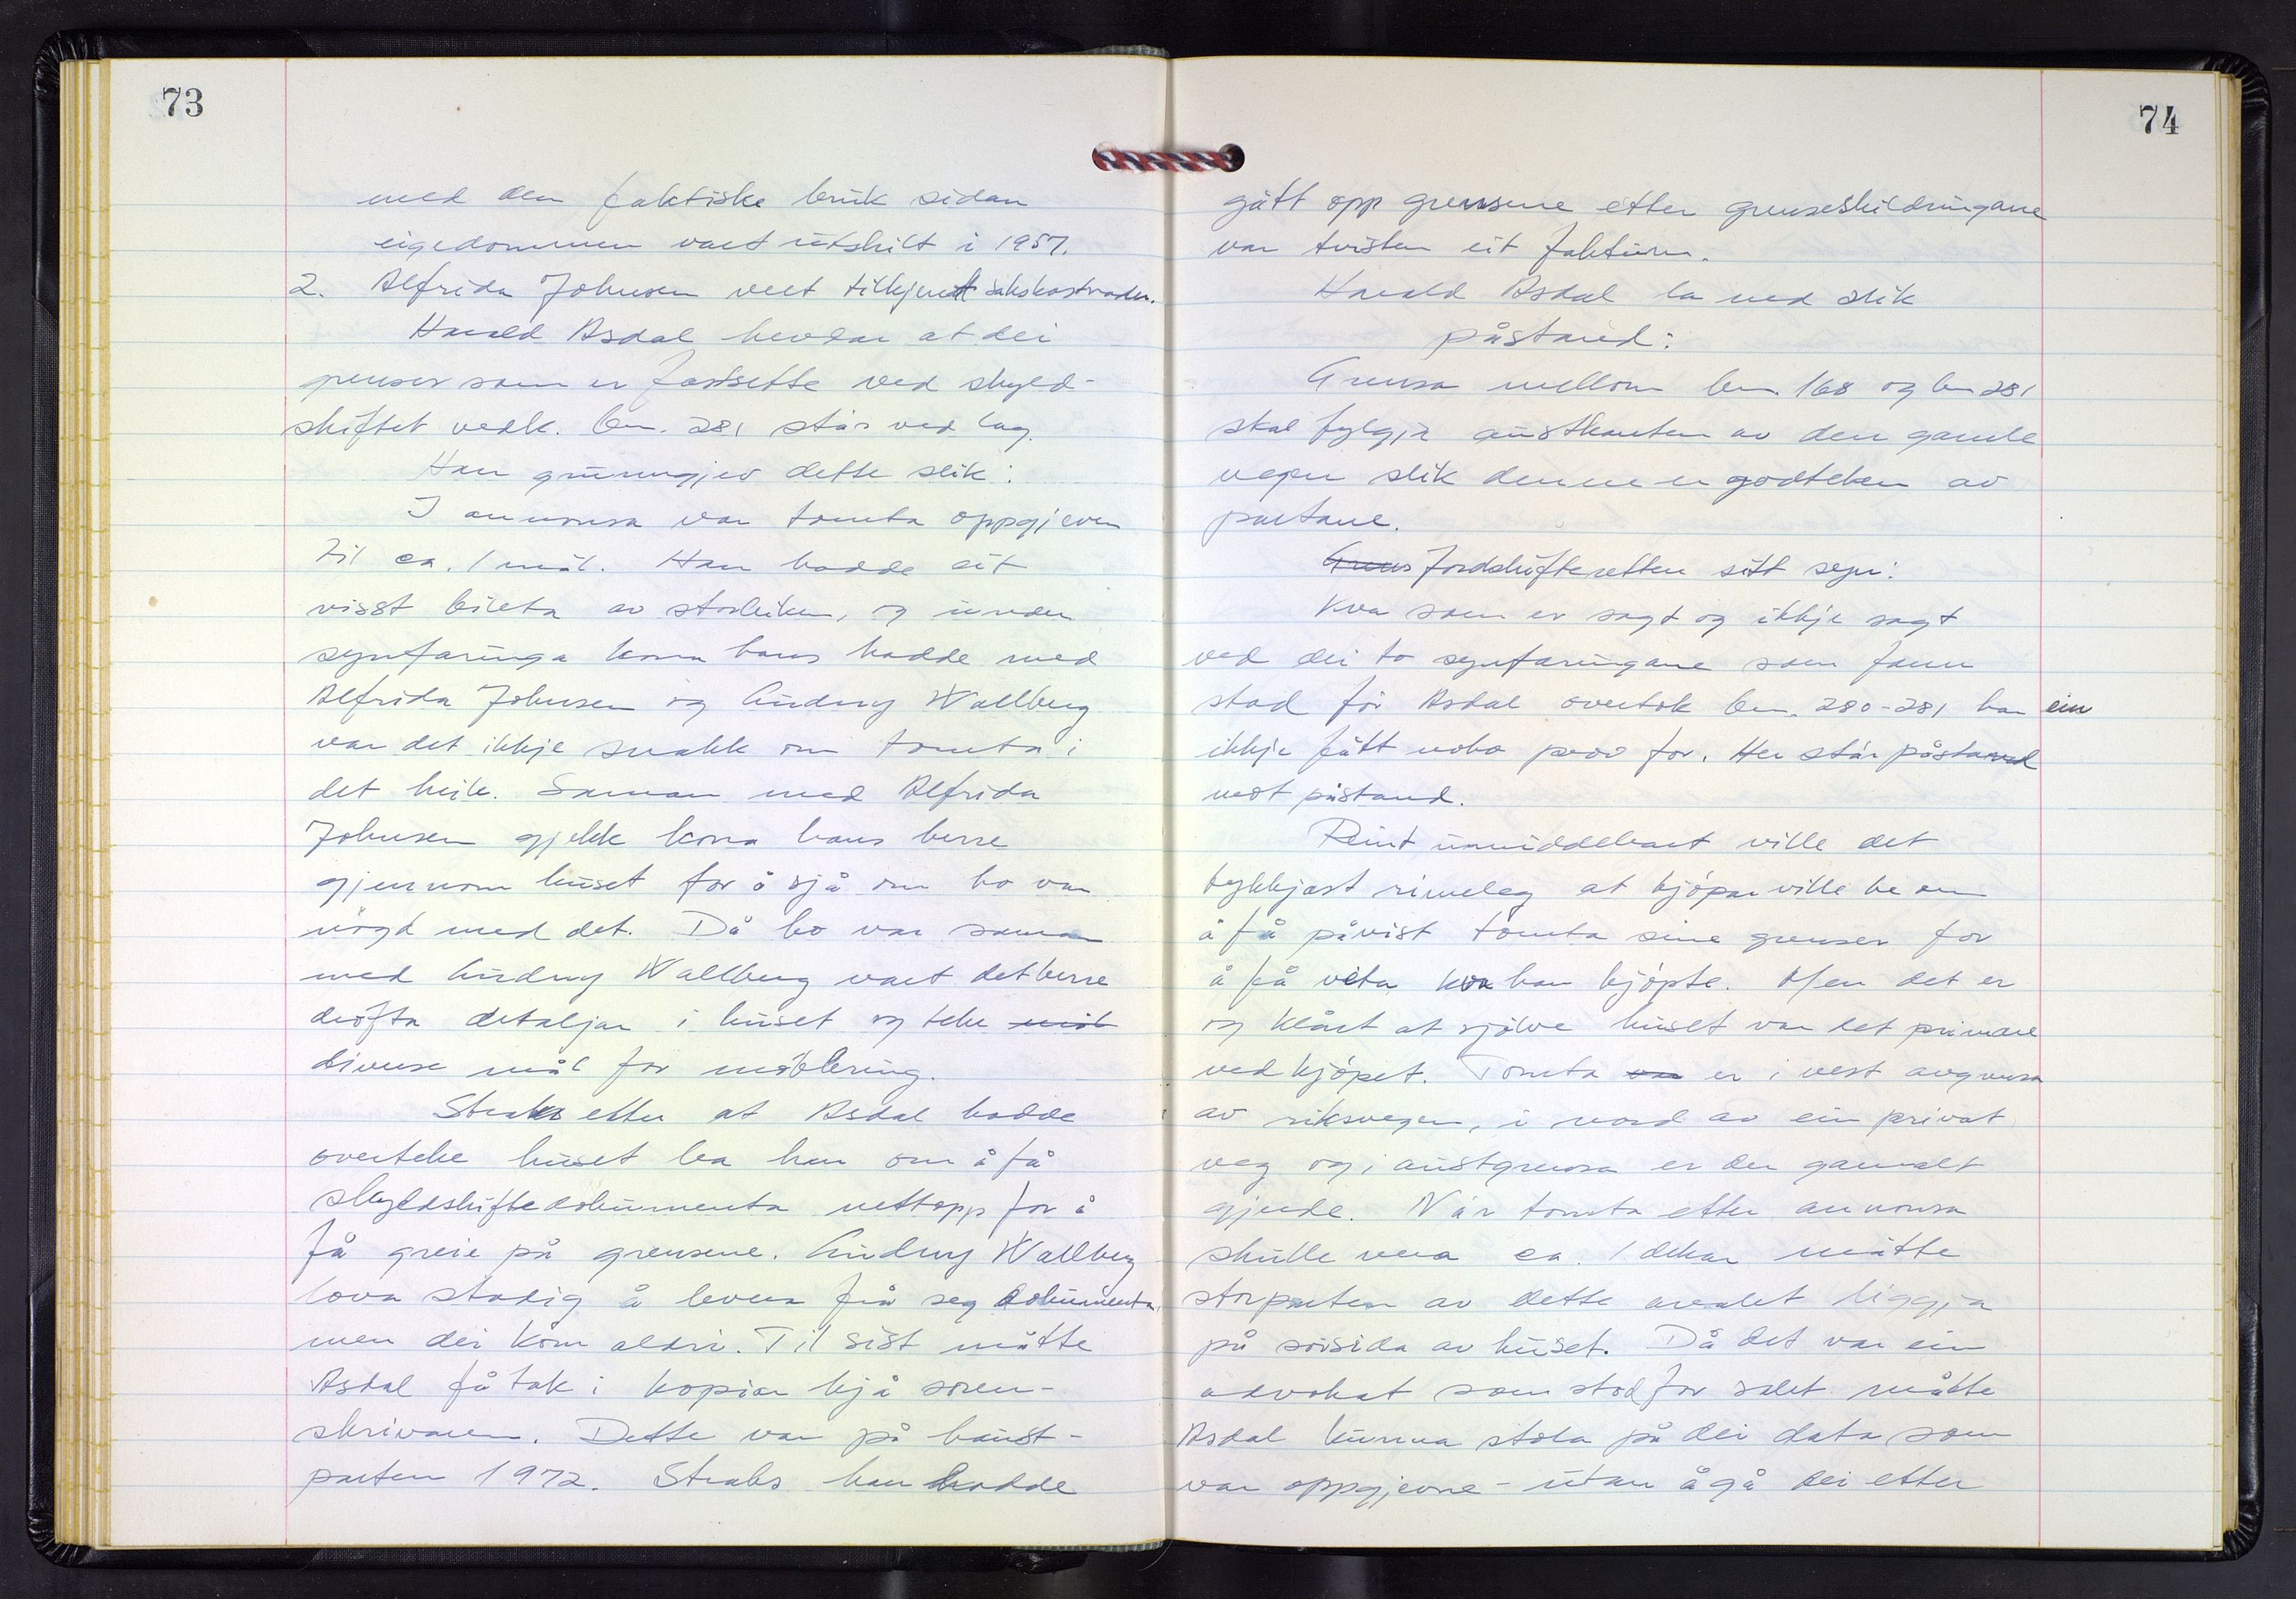 73
med den faktiske bruk sidan
eigedommen vart utskilt i 1957.
2. Alfrida Johnsen vert tilkjendt sakskostnader.
Harald Asdal hevdar at dei
grenser som er fastsette ved skyld-
skiftet vedk. bn. 281 står ved lag.
Han grunngjev dette slik:
I annonsa var tomta oppgjeven
til ca. 1 mål. Han hadde eit
visst bileta av storleiken, og under
synfaringa kona hans hadde med
Alfrida Johnsen og Audny Wallberg
var det ikkje snakk om tomta i
det heile. Saman med Alfrida
Johnsen gjekk kona hans berre
gjennom huset for å sjå om ho var
nögd med det. Då ho var saman
med Audny Wallberg vart det berre
dröfta detaljar i huset og teke mål
diverse mål for möblering.
Straks etter at Asdal hadde
overteke huset ba han om å få
skyldskiftedokumenta nettopp for å
få greie på grensene. Audny Wallberg
lova stadig å levera frå seg dokumenta,
men dei kom aldri. Til sist måtte
Asdal få tak i kopiar hjå soren-
skrivaren. Dette var på haust-
parten 1972. Straks han hadde
74
gått opp grensene etter grenseskildringane
var tvisten eit faktum.
Harald Asdal la ned slik
påstand:
Grensa mellom bn. 168 og bn 281
skal fylgja austkanten av den gamle
vegen slik denne er godteken av
partane.
Grens Jordskifteretten sitt syn:
Kva som er sagt og ikkje sagt
ved dei to synfaringane som fann
stad för Asdal overtok bn. 280-281 har ein
ikkje fått noko prov for. Her står påstand
mot påstand.
Reint umiddelbart ville det
tykkjast rimeleg at kjöpar ville be om
å få påvist tomta sine grenser for
å få vita kva han kjöpte. Men det er
og klårt at sjölve huset var det primære
ved kjöpet. Tomta var er i vest avgrensa
av riksvegen, i nord av ein privat
veg og i austgrensa er der gamalt
gjerde. Når tomta etter annonsa
skulle vera ca. 1 dekar måtte
storparten av dette arealet liggja
på sörsida av huset. Då det var ein
advokat som stod for salet måtte
Asdal kunna stola på dei data som
var oppgjevne - utan å gå dei etter